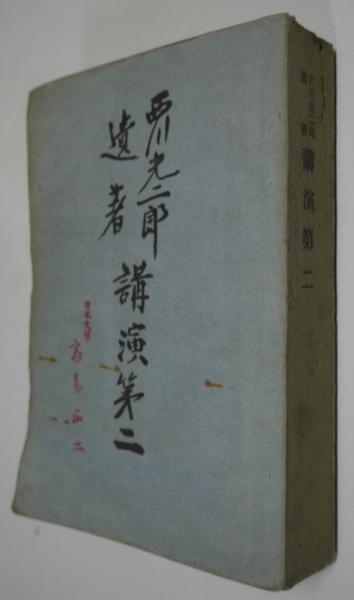 西川光二郎
遺著
講演第二
日本大学
西川光二郎
遺著
講演第二